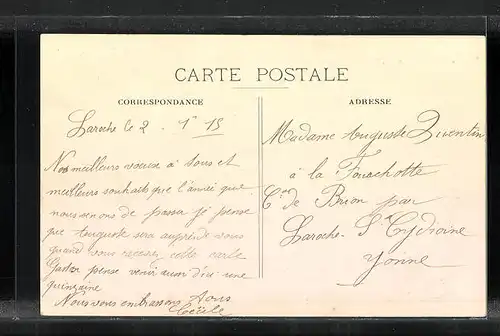 CARTE POSTALE
CORRESPONDANCE
Laroche le 2 1er 15
Nos meilleurs voeux à tous et
meilleurs souhaits que l'année que
nous venons de passa je pense
que auguste sera auprès de vous
quand vous recevrez cette carte
Gaston pense venir aussi d'ici une
quinzaine
Nous vous embrassons tous
Cécile
ADRESSE
Madame Auguste Quentin
à la Fourchotte
Cne de Brion par
Laroche-St Cydroine
Yonne